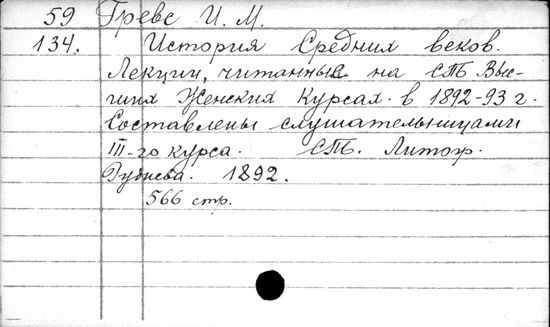 59 Гревс И. М.
134. История Средних веков.
Лекции, читанные на СПБ. Выс-
ших Женских Курсах. в 1892-93 г.
Составлены слушательницами
III-го курса. СПБ. Литогр.
1892.
566 стр.